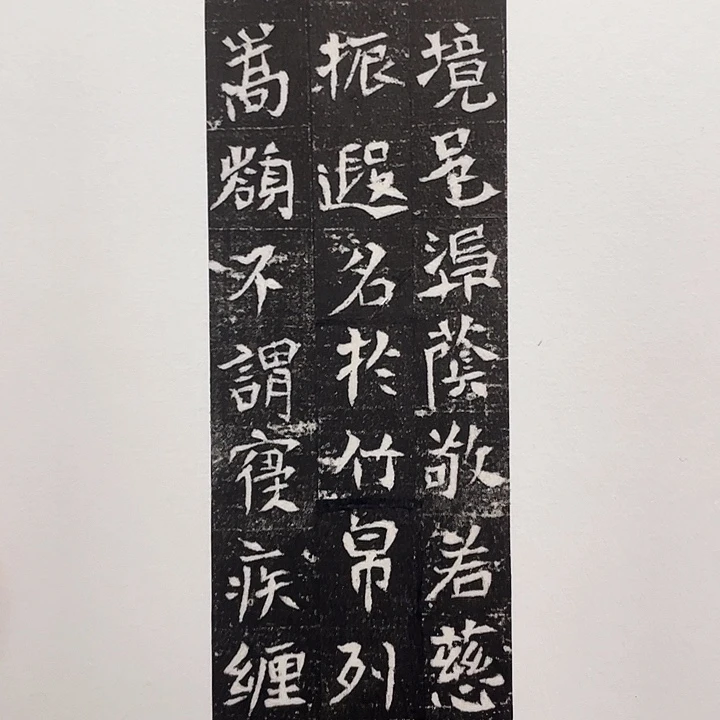 境邑歸蔭敬若慈
振遐名於竹帛列
嵩額不謂寢疾纏